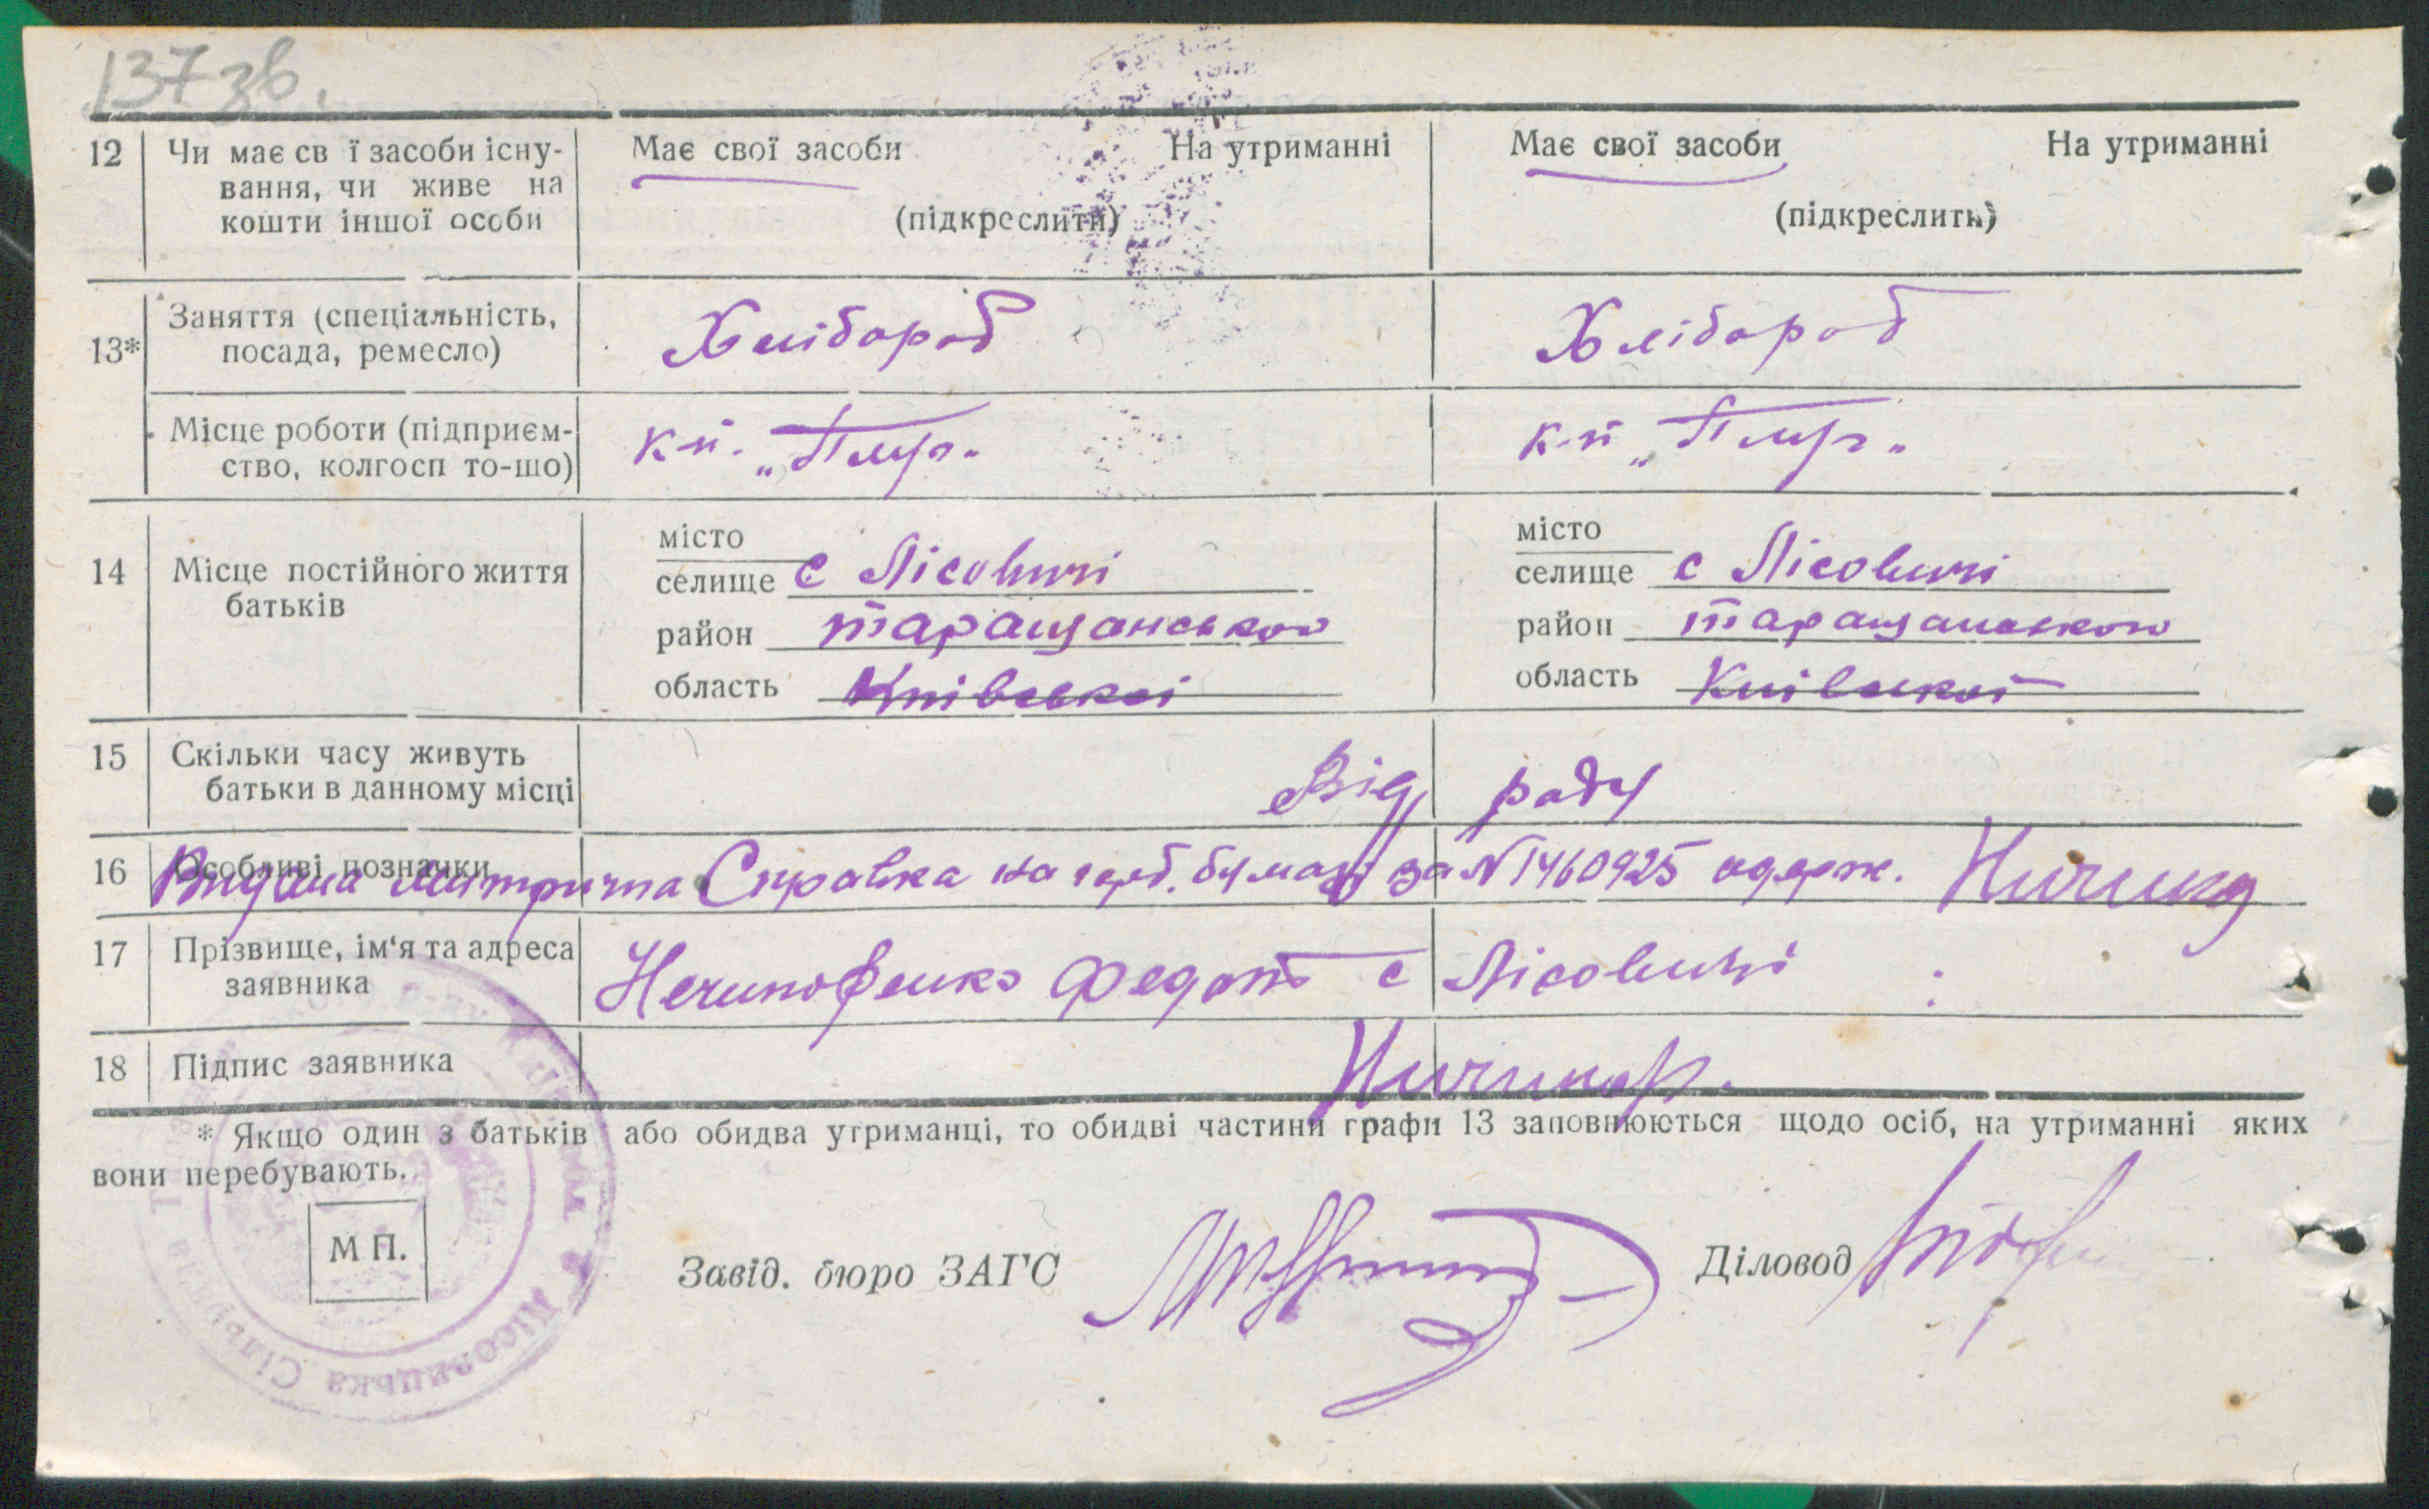 137 зв.
12 Чи має св ї засоби існу- Має свої засоби На утриманні Має свої засоби На утриманні
вання, чи живе на
кошти іншої особи (підкреслити) (підкреслить)
13* Заняття (спеціальність, Хлібороб Хлібороб
посада, ремесло)
Місце роботи (підприєм- к-п. к-п
ство, колгосп то-що)
14 Місце постійного життя батьків
місто
селище с Лісовичі
район таращанського
область Київської
місто
селище с Лісовичі
район таращанського
область Київської
15 Скільки часу живуть Від роду
батьки в данному місці
16 Особливі позначки Видана метрична Справка на герб. бумазі за № 1460925 одерж.
17 Прізвище, ім'я та адреса Нечипоренко Федот с Лісовичі
заявника
18 Підпис заявника Ничипор.
* Якщо один з батьків або обидва утриманці, то обидві частини графи 13 заповнюються щодо осіб, на утриманні яких
вони перебувають.
М П.
Завід. бюро ЗАГС Діловод
Лісовицька Сільрада